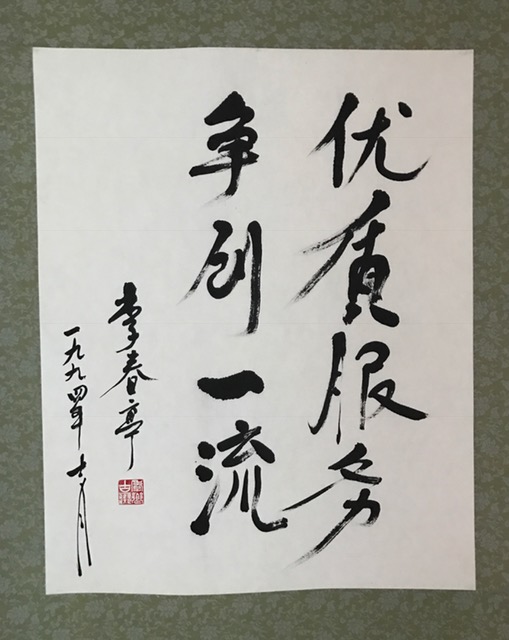 优质服务
争创一流
李春亭
一九九四年十月